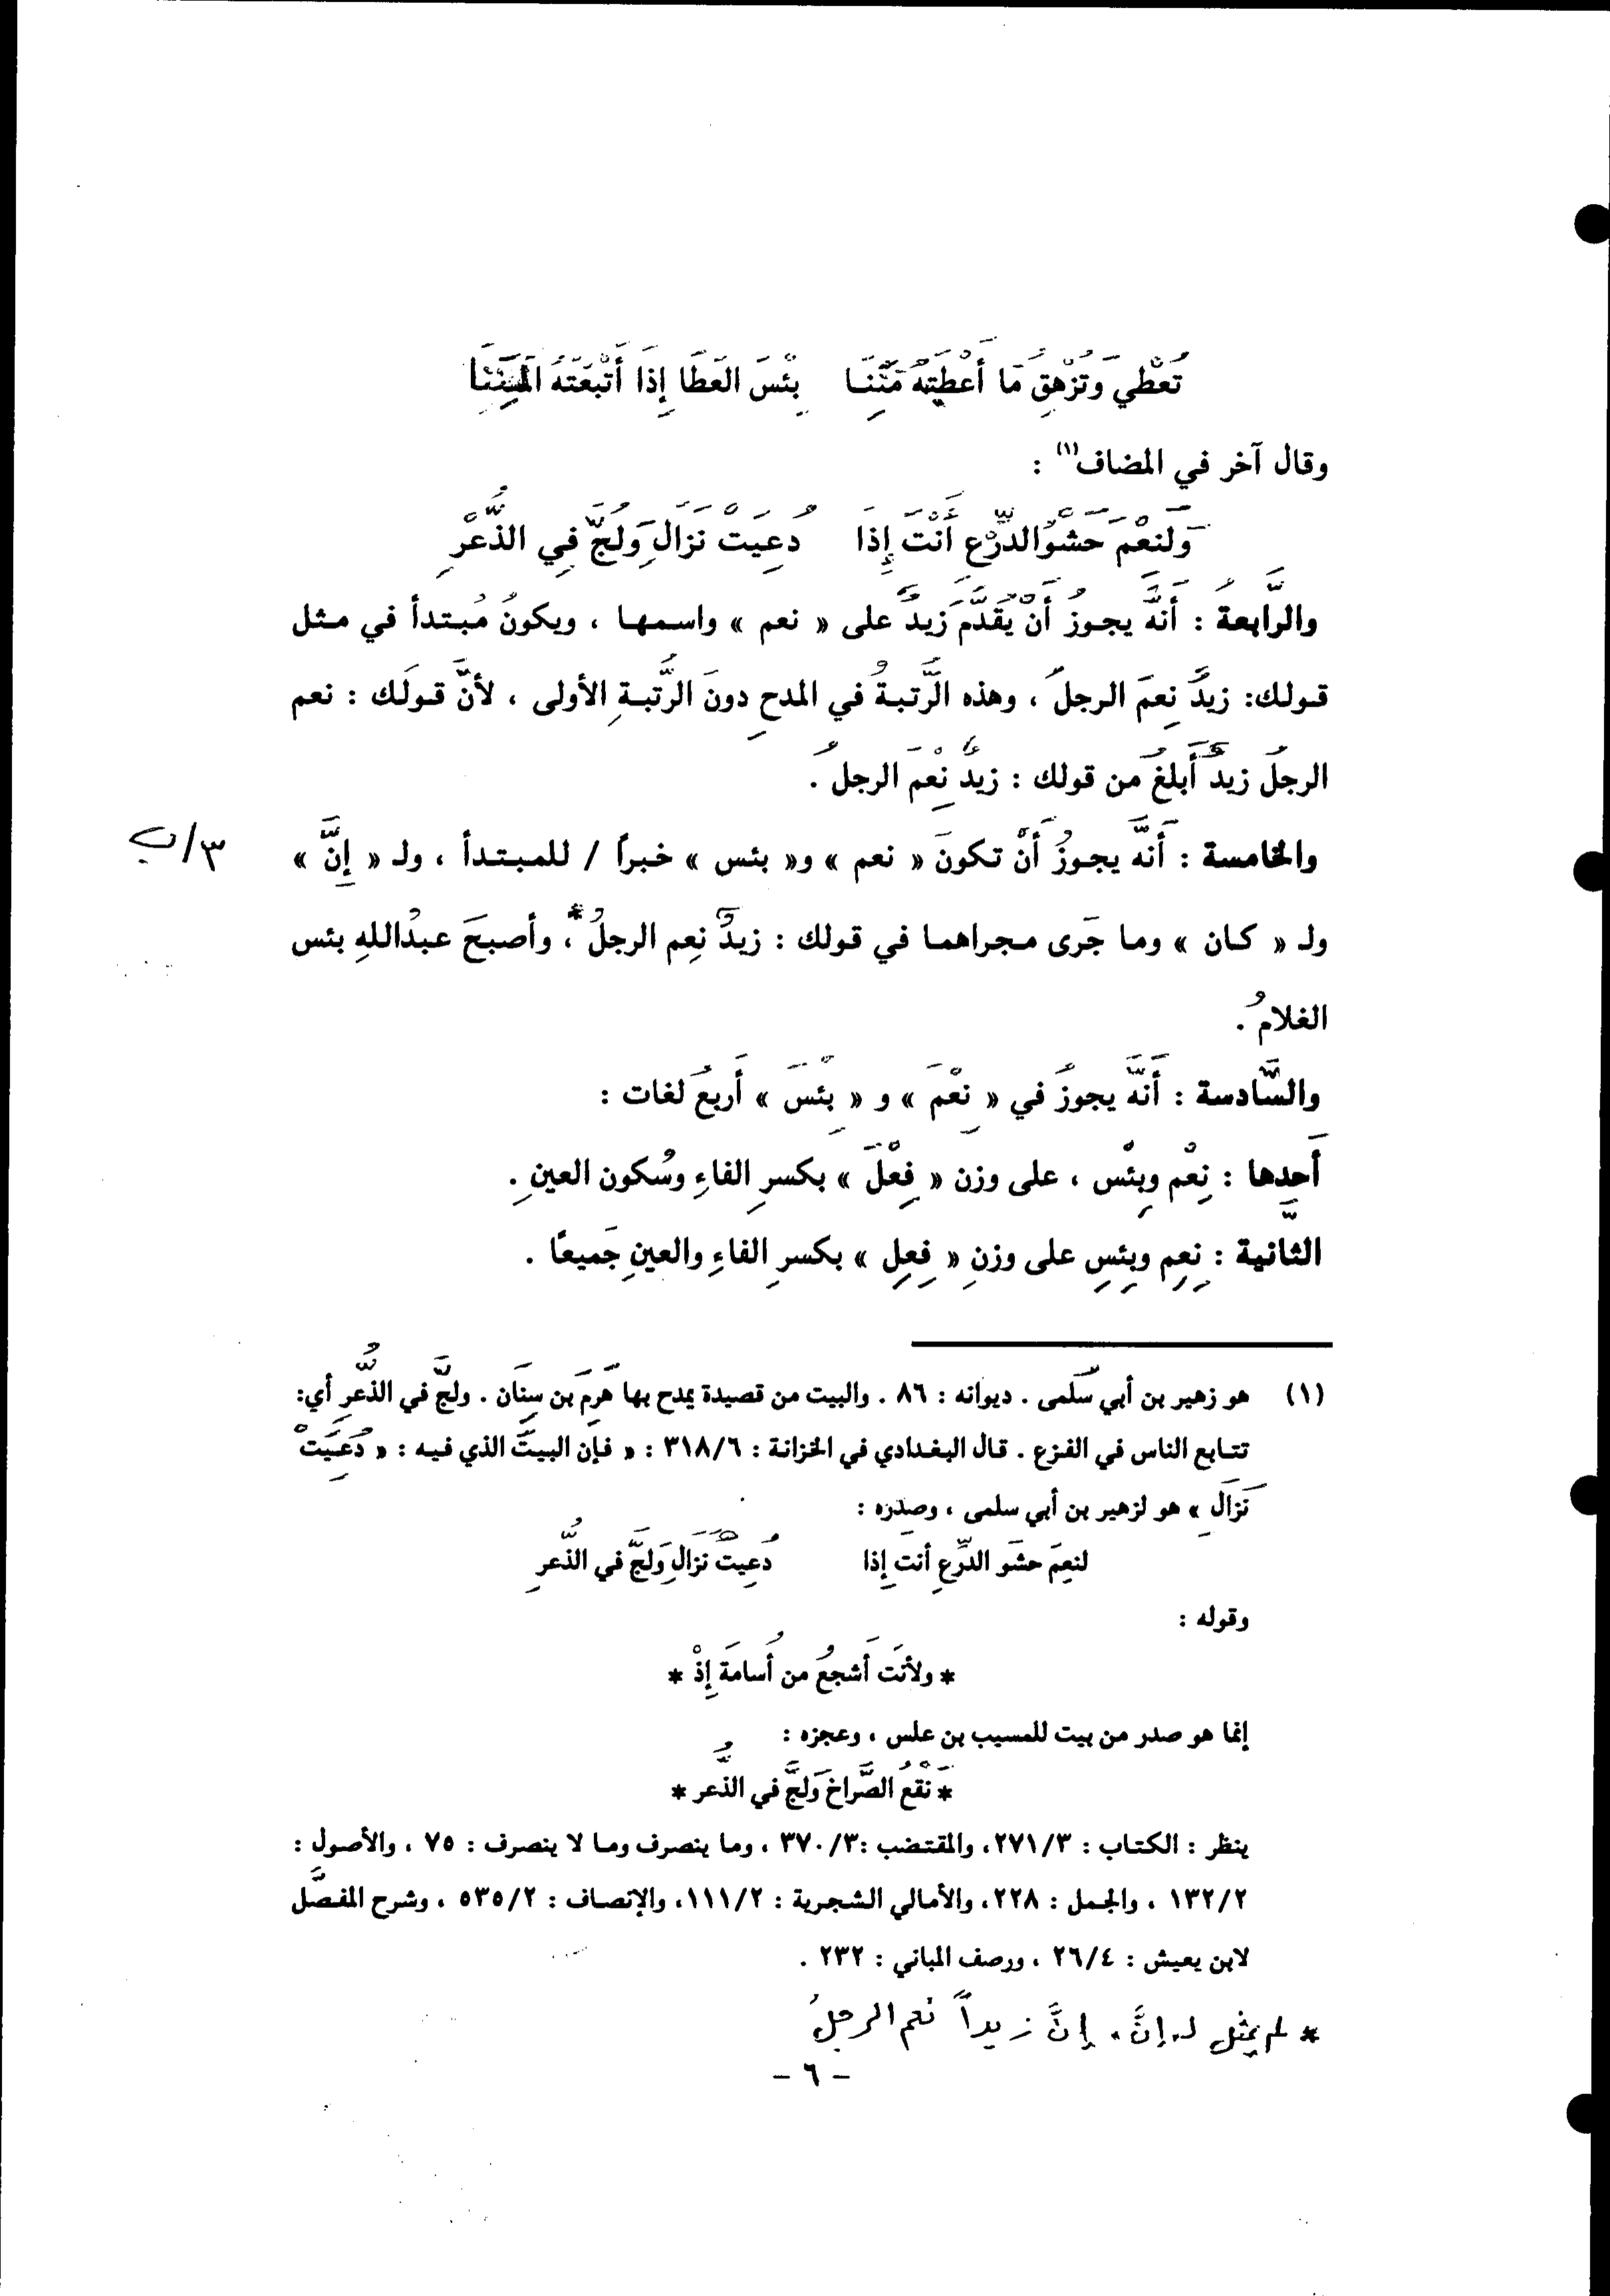 تُعْطِي وَتُزْهِقُ مَا أَعْطَيْتَهُ مِنَنَا بِئْسَ العَطَا إِذَا أَتْبَعْتَهُ المِنَنَا
وقال آخر في المضاف(١) :
وَلَنِعْمَ حَشْوُ الدِّرْعِ أَنْتَ إِذَا دُعِيَتْ نَزَالِ وَلُجَّ فِي الذُّعْرِ
والرَّابعةُ : أَنَّهُ يجوزُ أَنْ يُقَدَّمَ زيدٌ على « نعم » واسمها ، ويكونُ مُبتدأ في مثل
قولك: زيدٌ نِعمَ الرجلُ ، وهذه الرُّتبةُ في المدحِ دونَ الرُّتبةِ الأولى ، لأنَّ قولَك : نعم
الرجلُ زيدٌ أَبلغُ من قولك : زيدٌ نِعْمَ الرجلُ .
والخامسة : أَنَّه يجوزُ أَنْ تكونَ « نعم » و« بئس » خبراً / للمبتدأ ، ولـ « إِنَّ » ٣/ب
ولـ « كان » وما جَرى مجراهما في قولك : زيدٌ نِعم الرجلُ * ، وأصبحَ عبدُاللهِ بئس
الغلامُ .
والسَّادسة : أَنَّهُ يجوزُ في « نِعْمَ » و « بِئْسَ » أَربعُ لغات :
أَحدِها : نِعْم وبِئْس ، على وزن « فِعْلَ » بكسرِ الفاءِ وسُكون العينِ .
الثَّانية : نِعِم وبِئِسِ على وزنِ « فِعِلِ » بكسرِ الفاءِ والعينِ جَميعًا .
(١) هو زهير بن أبي سُلمى . ديوانه : ٨٦ . والبيت من قصيدة يمدح بها هَرِمَ بن سِنَان . ولجَّ في الذُّعرِ أي:
تتابع الناس في الفزع . قال البغدادي في الخزانة : ٣١٨/٦ : « فإن البيتَ الذي فيه : « دُعِيَتْ
نَزَالِ » هو لزهير بن أبي سلمى ، وصدره :
لنعِمَ حشَو الدِّرعِ أنتَ إِذا دُعِيتْ نَزَالِ وَلجَّ في الذُّعرِ
وقوله :
* ولأنتَ أَشجعُ من أُسامَة إِذْ *
إنما هو صدر من بيت للمسيب بن علس ، وعجزه :
* نَقْعُ الصُّراخِ وَلجَّ في الذُّعر *
ينظر : الكتاب : ٢٧١/٣، والمقتضب :٣٧٠/٣ ، وما ينصرف وما لا ينصرف : ٧٥ ، والأصول :
١٣٢/٢ ، والجمل : ٢٢٨، والأمالي الشجرية : ١١١/٢، والإنصاف : ٥٣٥/٢ ، وشرح المفصَّل
لابن يعيش : ٢٦/٤ ، ورصف المباني : ٢٣٢ .
* لم يمثل لـ «إنَّ» إنَّ زيداً نعم الرجلُ
- ٦ -